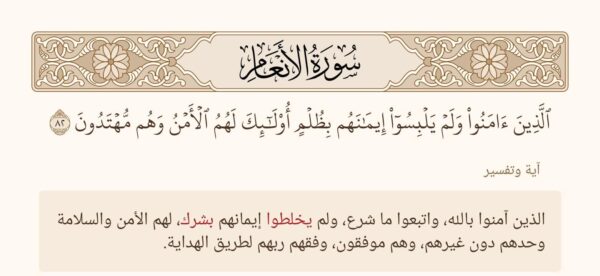 سُورَةُ الأَنْعَامِ
ٱلَّذِينَ ءَامَنُوا۟ وَلَمْ يَلْبِسُوٓا۟ إِيمَـٰنَهُم بِظُلْمٍ أُو۟لَـٰٓئِكَ لَهُمُ ٱلْأَمْنُ وَهُم مُّهْتَدُونَ ٨٢
آية وتفسير
الذين آمنوا بالله، واتبعوا ما شرع، ولم يخلطوا إيمانهم بشرك، لهم الأمن والسلامة
وحدهم دون غيرهم، وهم موفقون، وفقهم ربهم لطريق الهداية.